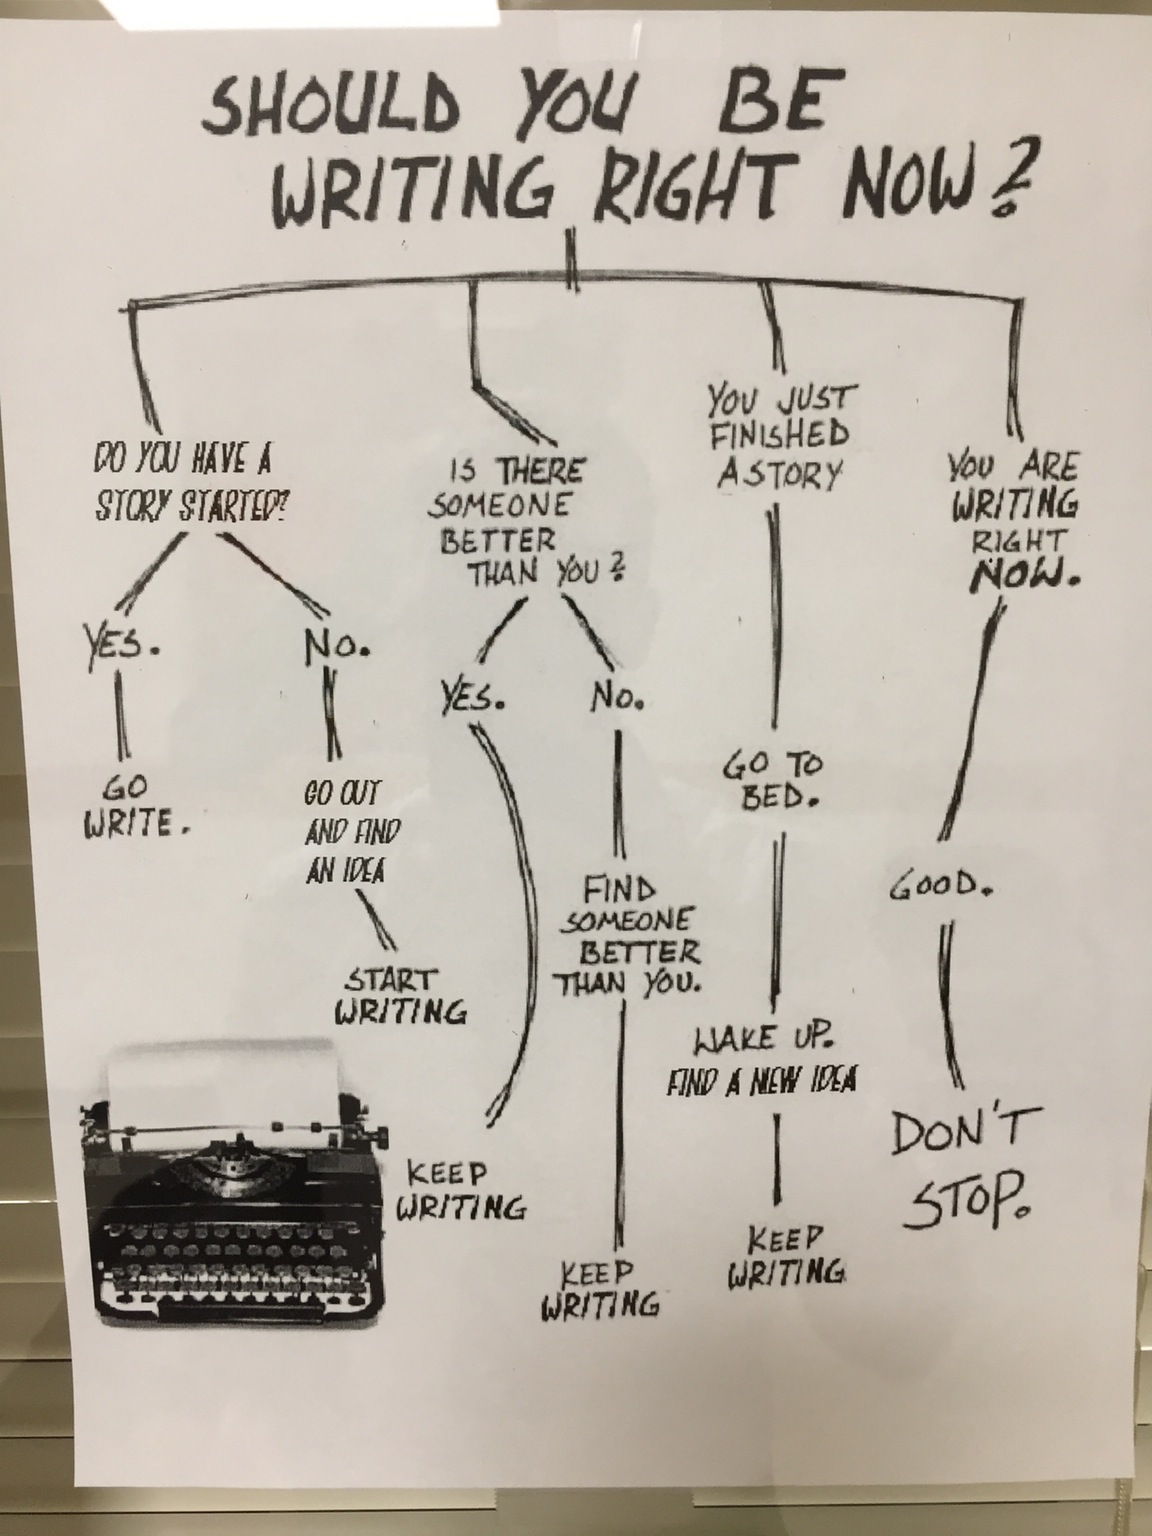 SHOULD YOU BE
WRITING RIGHT NOW?
DO YOU HAVE A
STORY STARTED?
YES.
GO
WRITE.
NO.
GO OUT
AND FIND
AN IDEA
START
WRITING
IS THERE
SOMEONE
BETTER
THAN YOU?
YES.
KEEP
WRITING
NO.
FIND
SOMEONE
BETTER
THAN YOU.
KEEP
WRITING
YOU JUST
FINISHED
A STORY
GO TO
BED.
WAKE UP.
FIND A NEW IDEA
KEEP
WRITING
YOU ARE
WRITING
RIGHT
NOW.
GOOD.
DON'T
STOP.